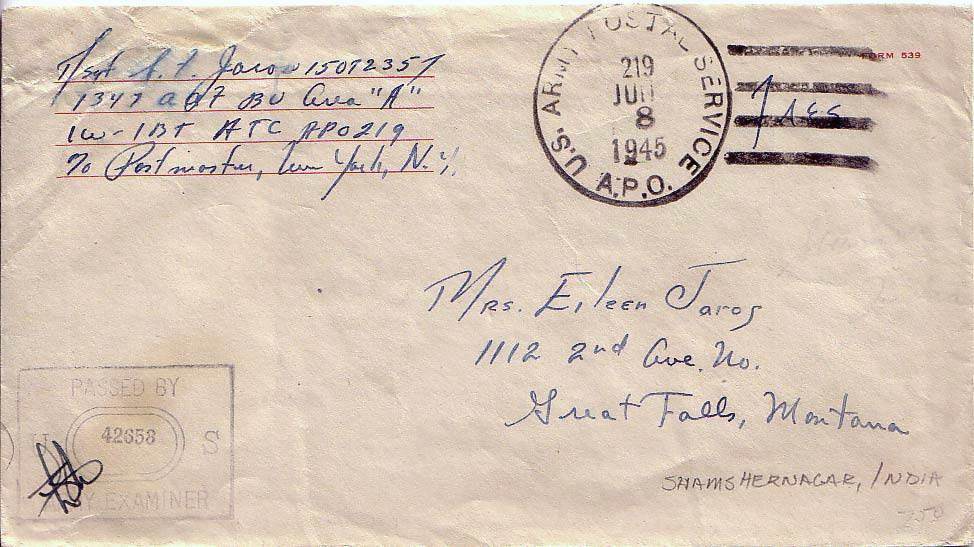 T/Sgt A. T. Jaros 15072357
1347 AAF BU Area "A"
ICW-IBT ATC APO 219
℅ Postmaster, New York, N.Y.
U.S. ARMY POSTAL SERVICE
219
JUN
8
1945
A.P.O.
FORM 539
Free
Mrs. Eileen Jaros
1112 2nd Ave. No.
Great Falls, Montana
PASSED BY
U 42658 S
ARMY EXAMINER
SHAMSHERNAGAR, INDIA